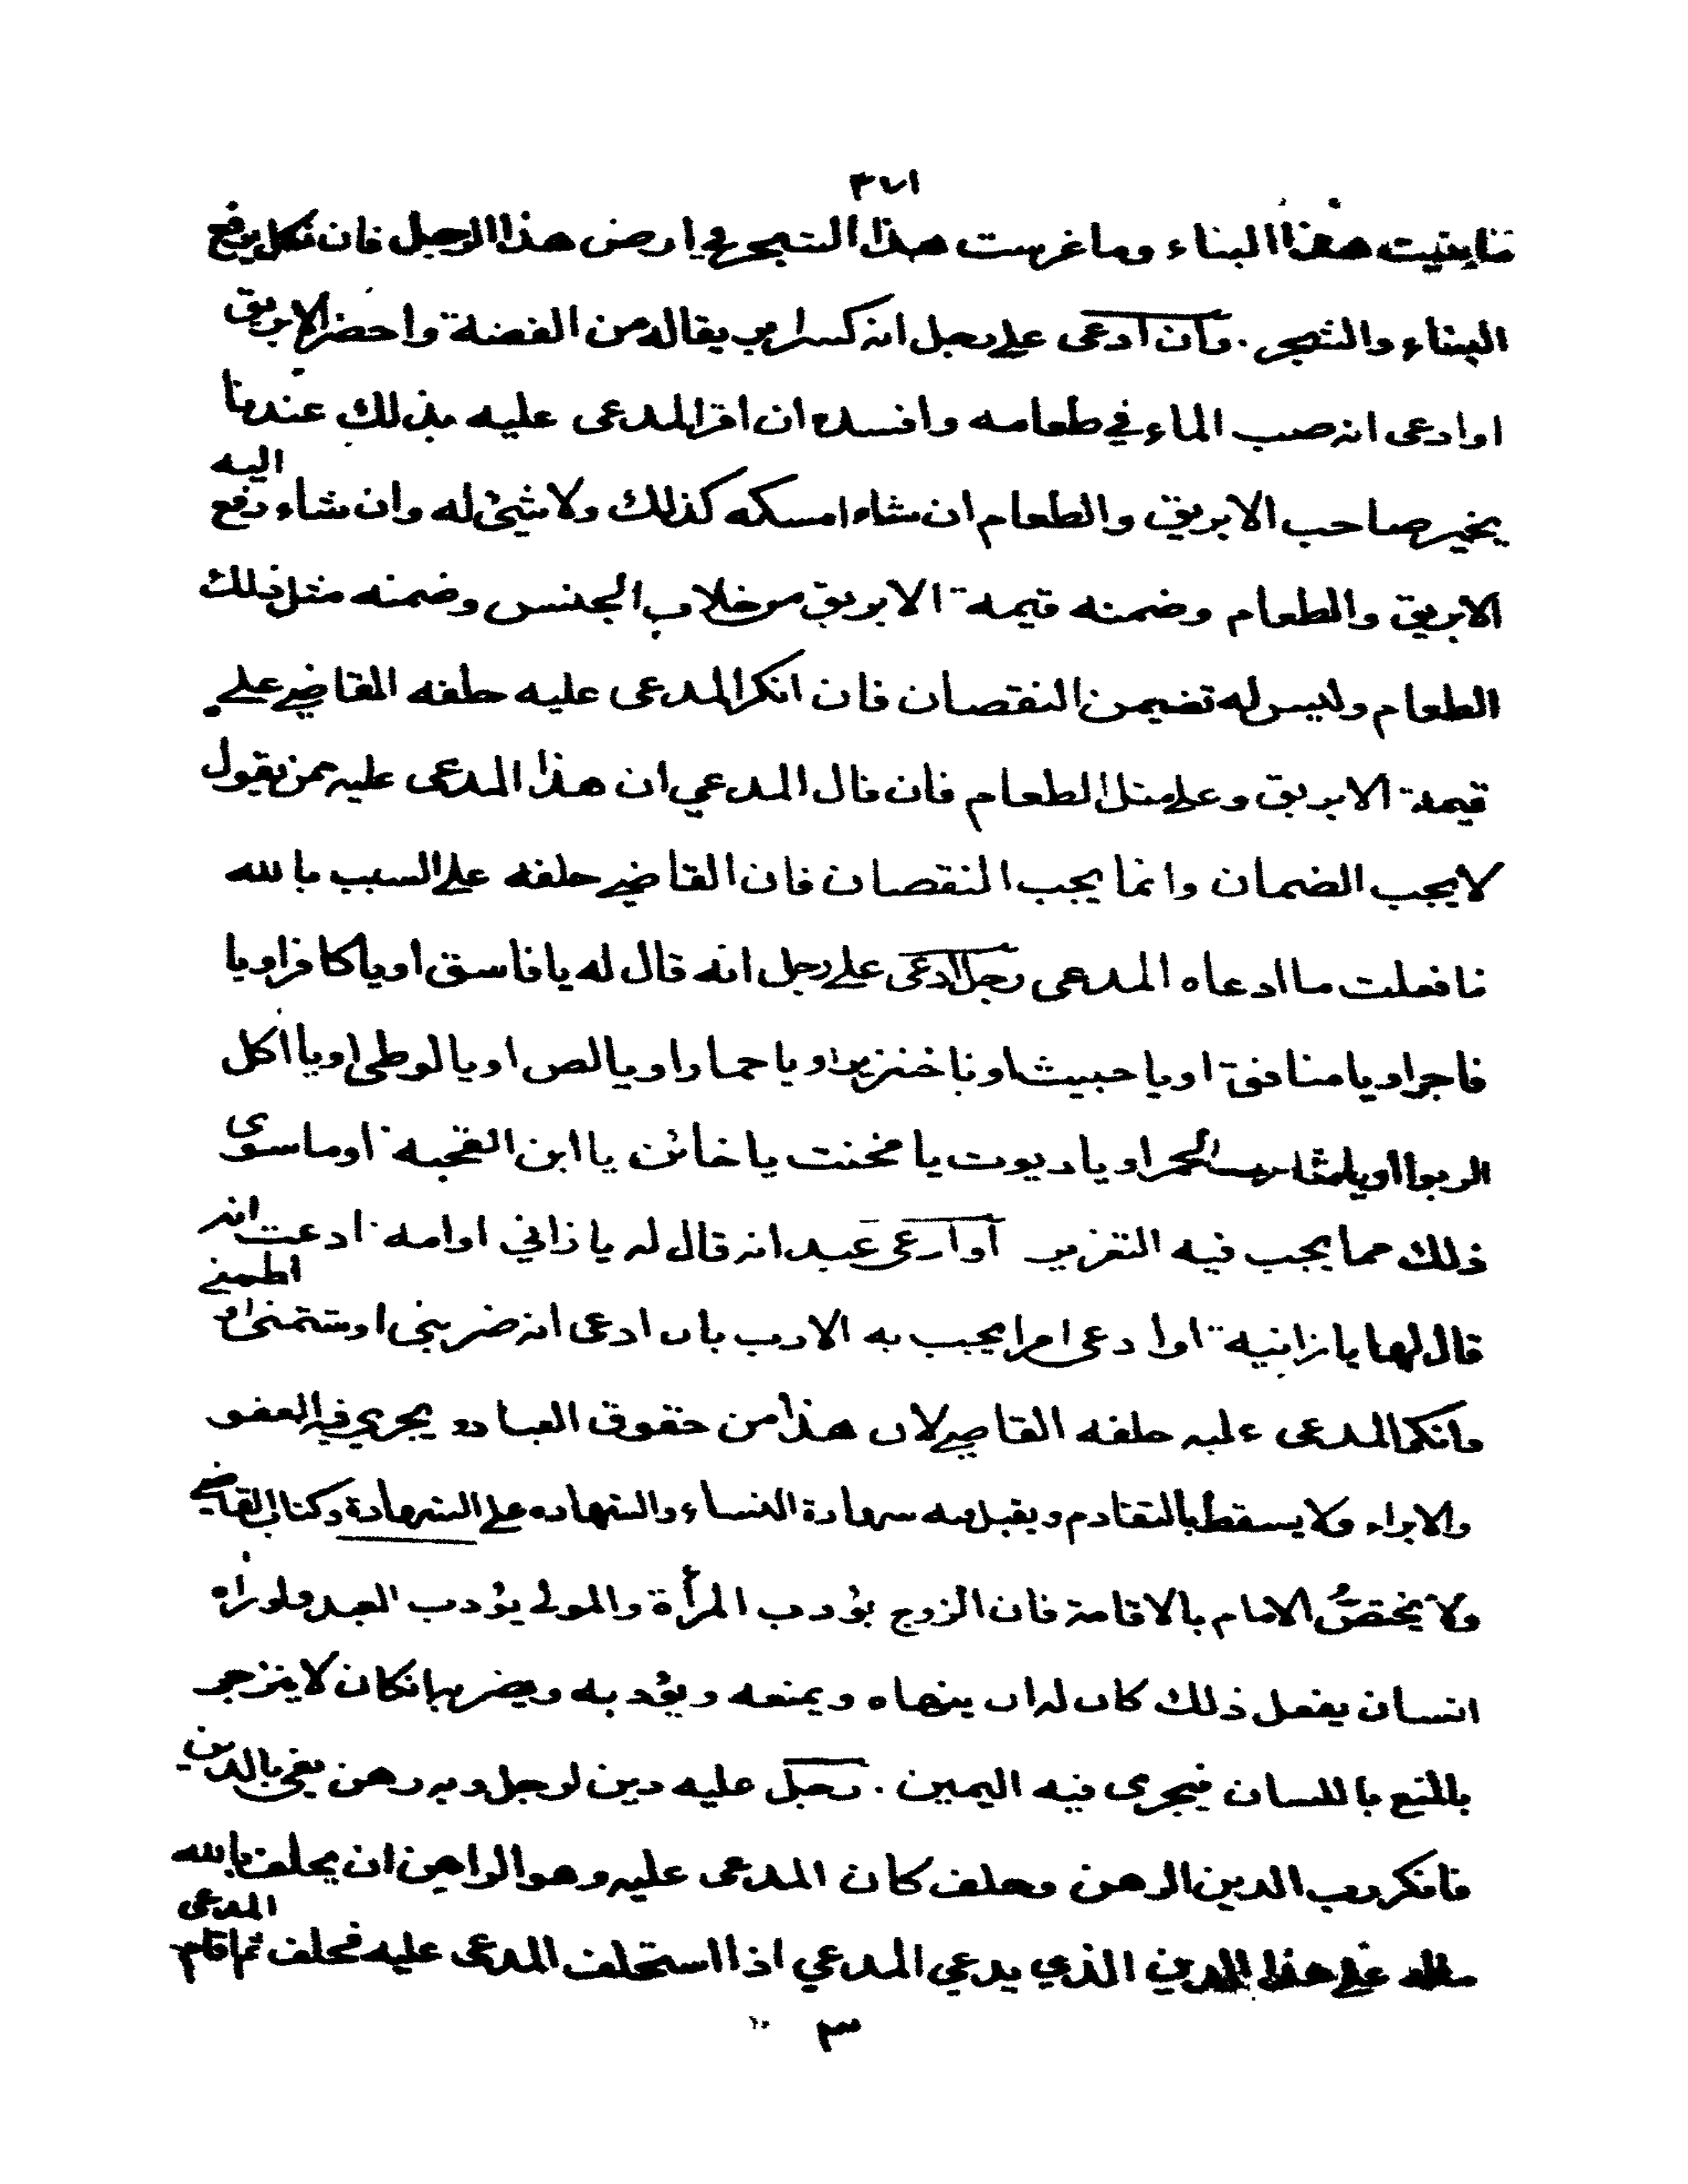 ١٧٣
مابنيت هذا البناء وما غرست هذا الشجر في ارض هذا الرجل فان نكل يرفع
البناء والشجر . وان ادعى على رجل انه كسر ابريقاله من الفضة واحضر الابريق
او ادعى انه صب الماء في طعامه وافسده ان اقر المدعى عليه بذلك عندنا
يخير صاحب الابريق والطعام ان شاء امسكه كذلك ولا شئ له وان شاء دفع اليه
الابريق والطعام وضمنه قيمة الابريق من خلاف الجنس وضمنه مثل ذلك
الطعام وليس له تضمين النقصان فان انكر المدعى عليه حلفه القاضي على
قيمة الابريق وعلى مثل الطعام فان قال المدعي ان هذا المدعى عليه ممن يقول
لا يجب الضمان وانما يجب النقصان فان القاضي حلفه على السبب بالله
مافعلت ما ادعاه المدعى رجل ادعى على رجل انه قال له يا فاسق او يا كافر او يا
فاجر او يا منافق او يا خبيث او يا خنزير او يا حمار او يا لص او يا لوطى او يا اكل
الربوا او يا شارب الخمر او يا ديوت يا مخنت يا خائن يا ابن القحبه او ما سوى
ذلك مما يجب فيه التعزير او ادعى عبد انه قال له يا زاني او امه ادعت انه
قال لها يا زانيه او ادعى امرا يجب به الادب بان ادعى انه ضربنى او شتمنى او لطمني
وانكر المدعى عليه حلفه القاضي لان هذا من حقوق العباد و يجري فيه العفو
والابراء ولا يسقط بالتقادم ويقبل فيه شهادة النساء والشهاده على الشهادة وكتاب القاضي
ولا يختص الامام بالاقامة فان الزوج يؤدب المرأة والمولى يؤدب العبد ولو راه
انسان يفعل ذلك كان له ان ينهاه و يمنعه و يؤدبه ويضربه انكان لا ينزجر
بالمنع باللسان فيجرى فيه اليمين . رجل عليه دين لرجل وبه رهن يفي بالدين
فانكر رب الدين الرهن وحلف كان المدعى عليه وهو الراهن ان يحلف بالله
ماله على هذا الدين الذي يدعي المدعي اذا استحلف المدعى عليه فحلف ثم اقام المدعى
٣